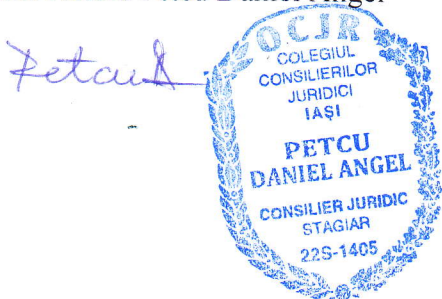 Daniel Angel
Petcu
OCJR
COLEGIUL
CONSILIERILOR
JURIDICI
IAȘI
PETCU
DANIEL ANGEL
CONSILIER JURIDIC
STAGIAR
22S-1405